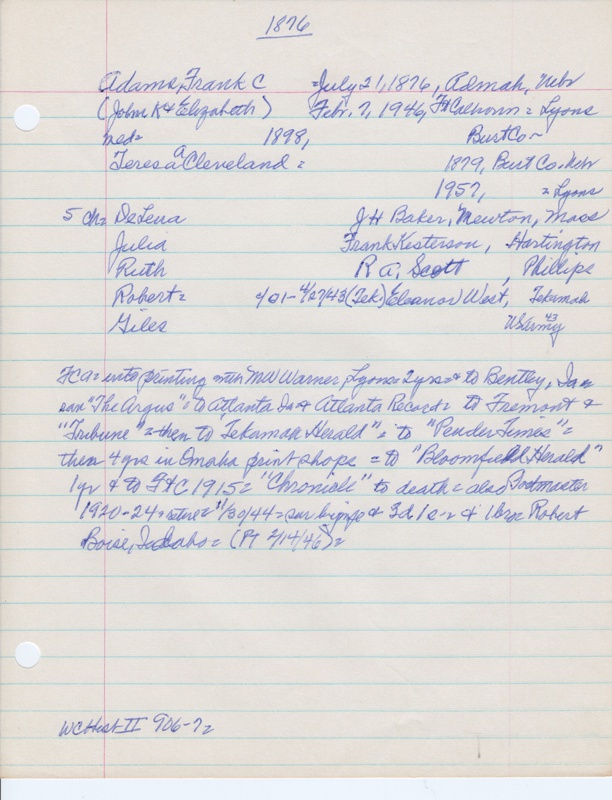 1876
Adams, Frank C = July 21, 1876, Admah, Nebr
(John K & Elizabeth) Febr. 7, 1946, Ft Calhoun = Lyons
md= 1898, Burt Co ~
Teresa A Cleveland = 1879, Burt Co. Nebr
1957, = Lyons
5 ch= DeLena J H Baker, Newton, Mass
Julia Frank Kesterson, Hartington
Ruth R A, Scott, Phillips
Robert = /01-4/27/43 (Tek) Eleanor West, Tekamah
Giles US Army 43
FCA = into printing with MW Warner, Lyons = 2 yrs = & to Bentley, Ia =
ran "The Argus" = to Atlanta Ia & Atlanta Record = to Fremont &
"Tribune" = then to Tekamah Herald" = to "Pender Times" =
then 4 yrs in Omaha print shops = to "Bloomfield Herald"
1 yr & to Ft C 1915 = "Chronicle" to death = also Postmaster
1920-24 = retire = 11/30/44 = sur by wife & 3 d 1 s = & 1 bro = Robert
Boise, Idaho = (PT 2/14/46) =
WC Hist II 906-7 =